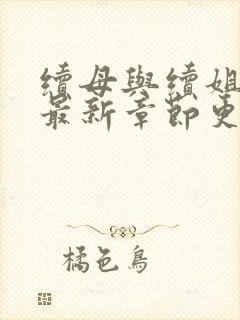 續母與續姐
最新章節更
橘色鳥